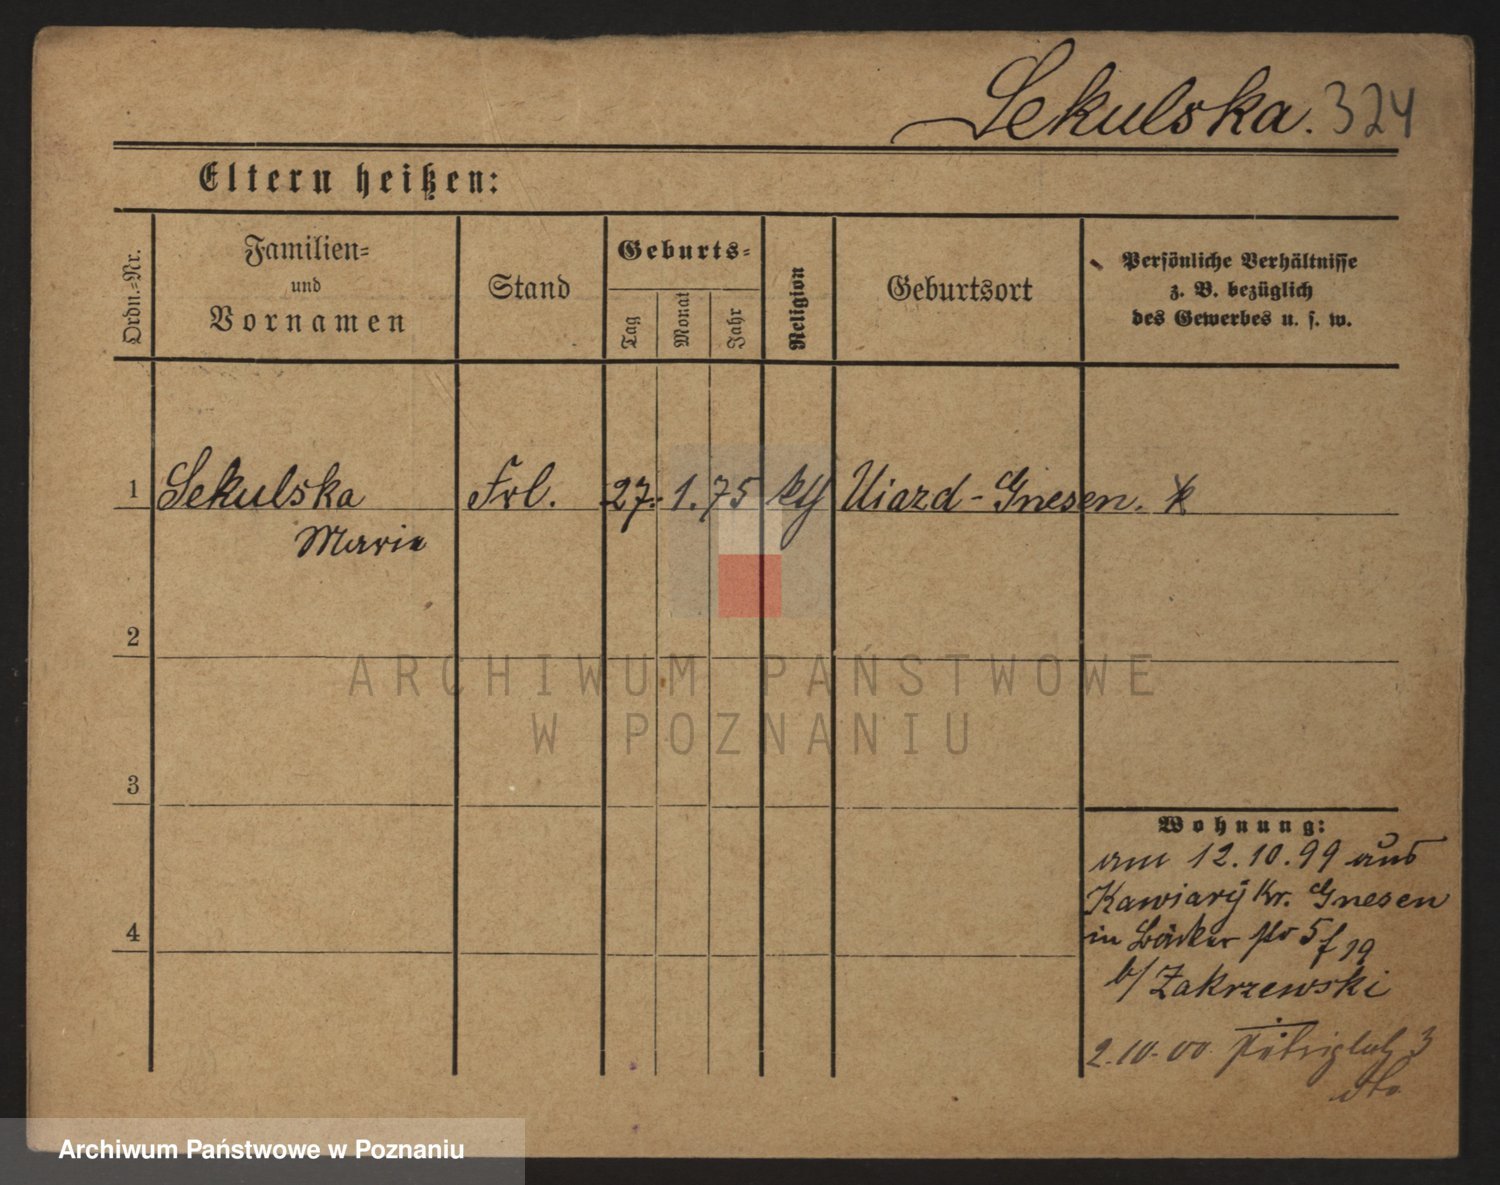 Sekulska. 324
Eltern heißen:
Ordn.-Nr.
Familien-
und
Vornamen
Stand
Geburts-
Tag
Monat
Jahr
Religion
Geburtsort
Persönliche Verhältnisse
z. B. bezüglich
des Gewerbes u. s. w.
1 Sekulska Frl. 27. 1. 75 Uiazd - Gnesen.
Marie
2
ARCHIWUM PAŃSTWOWE
W POZNANIU
3
Wohnung:
am 12.10.99 aus
Kawiary Kr. Gnesen
4
in Bäcker 5 19
b/ Zakrzewski
2.10.00 3
Archiwum Państwowe w Poznaniu